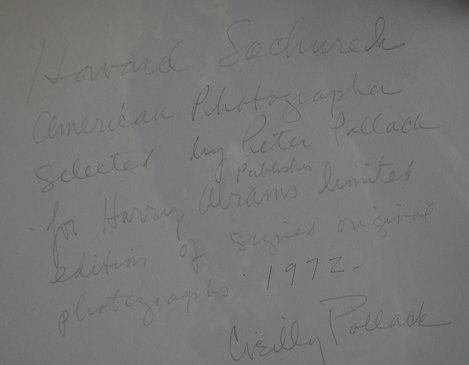 Howard Sochurek
American Photographer
Selected by Peter Pollack
Publisher
for Harry Abrams limited
edition of signed original
photographs 1972.
Pollack